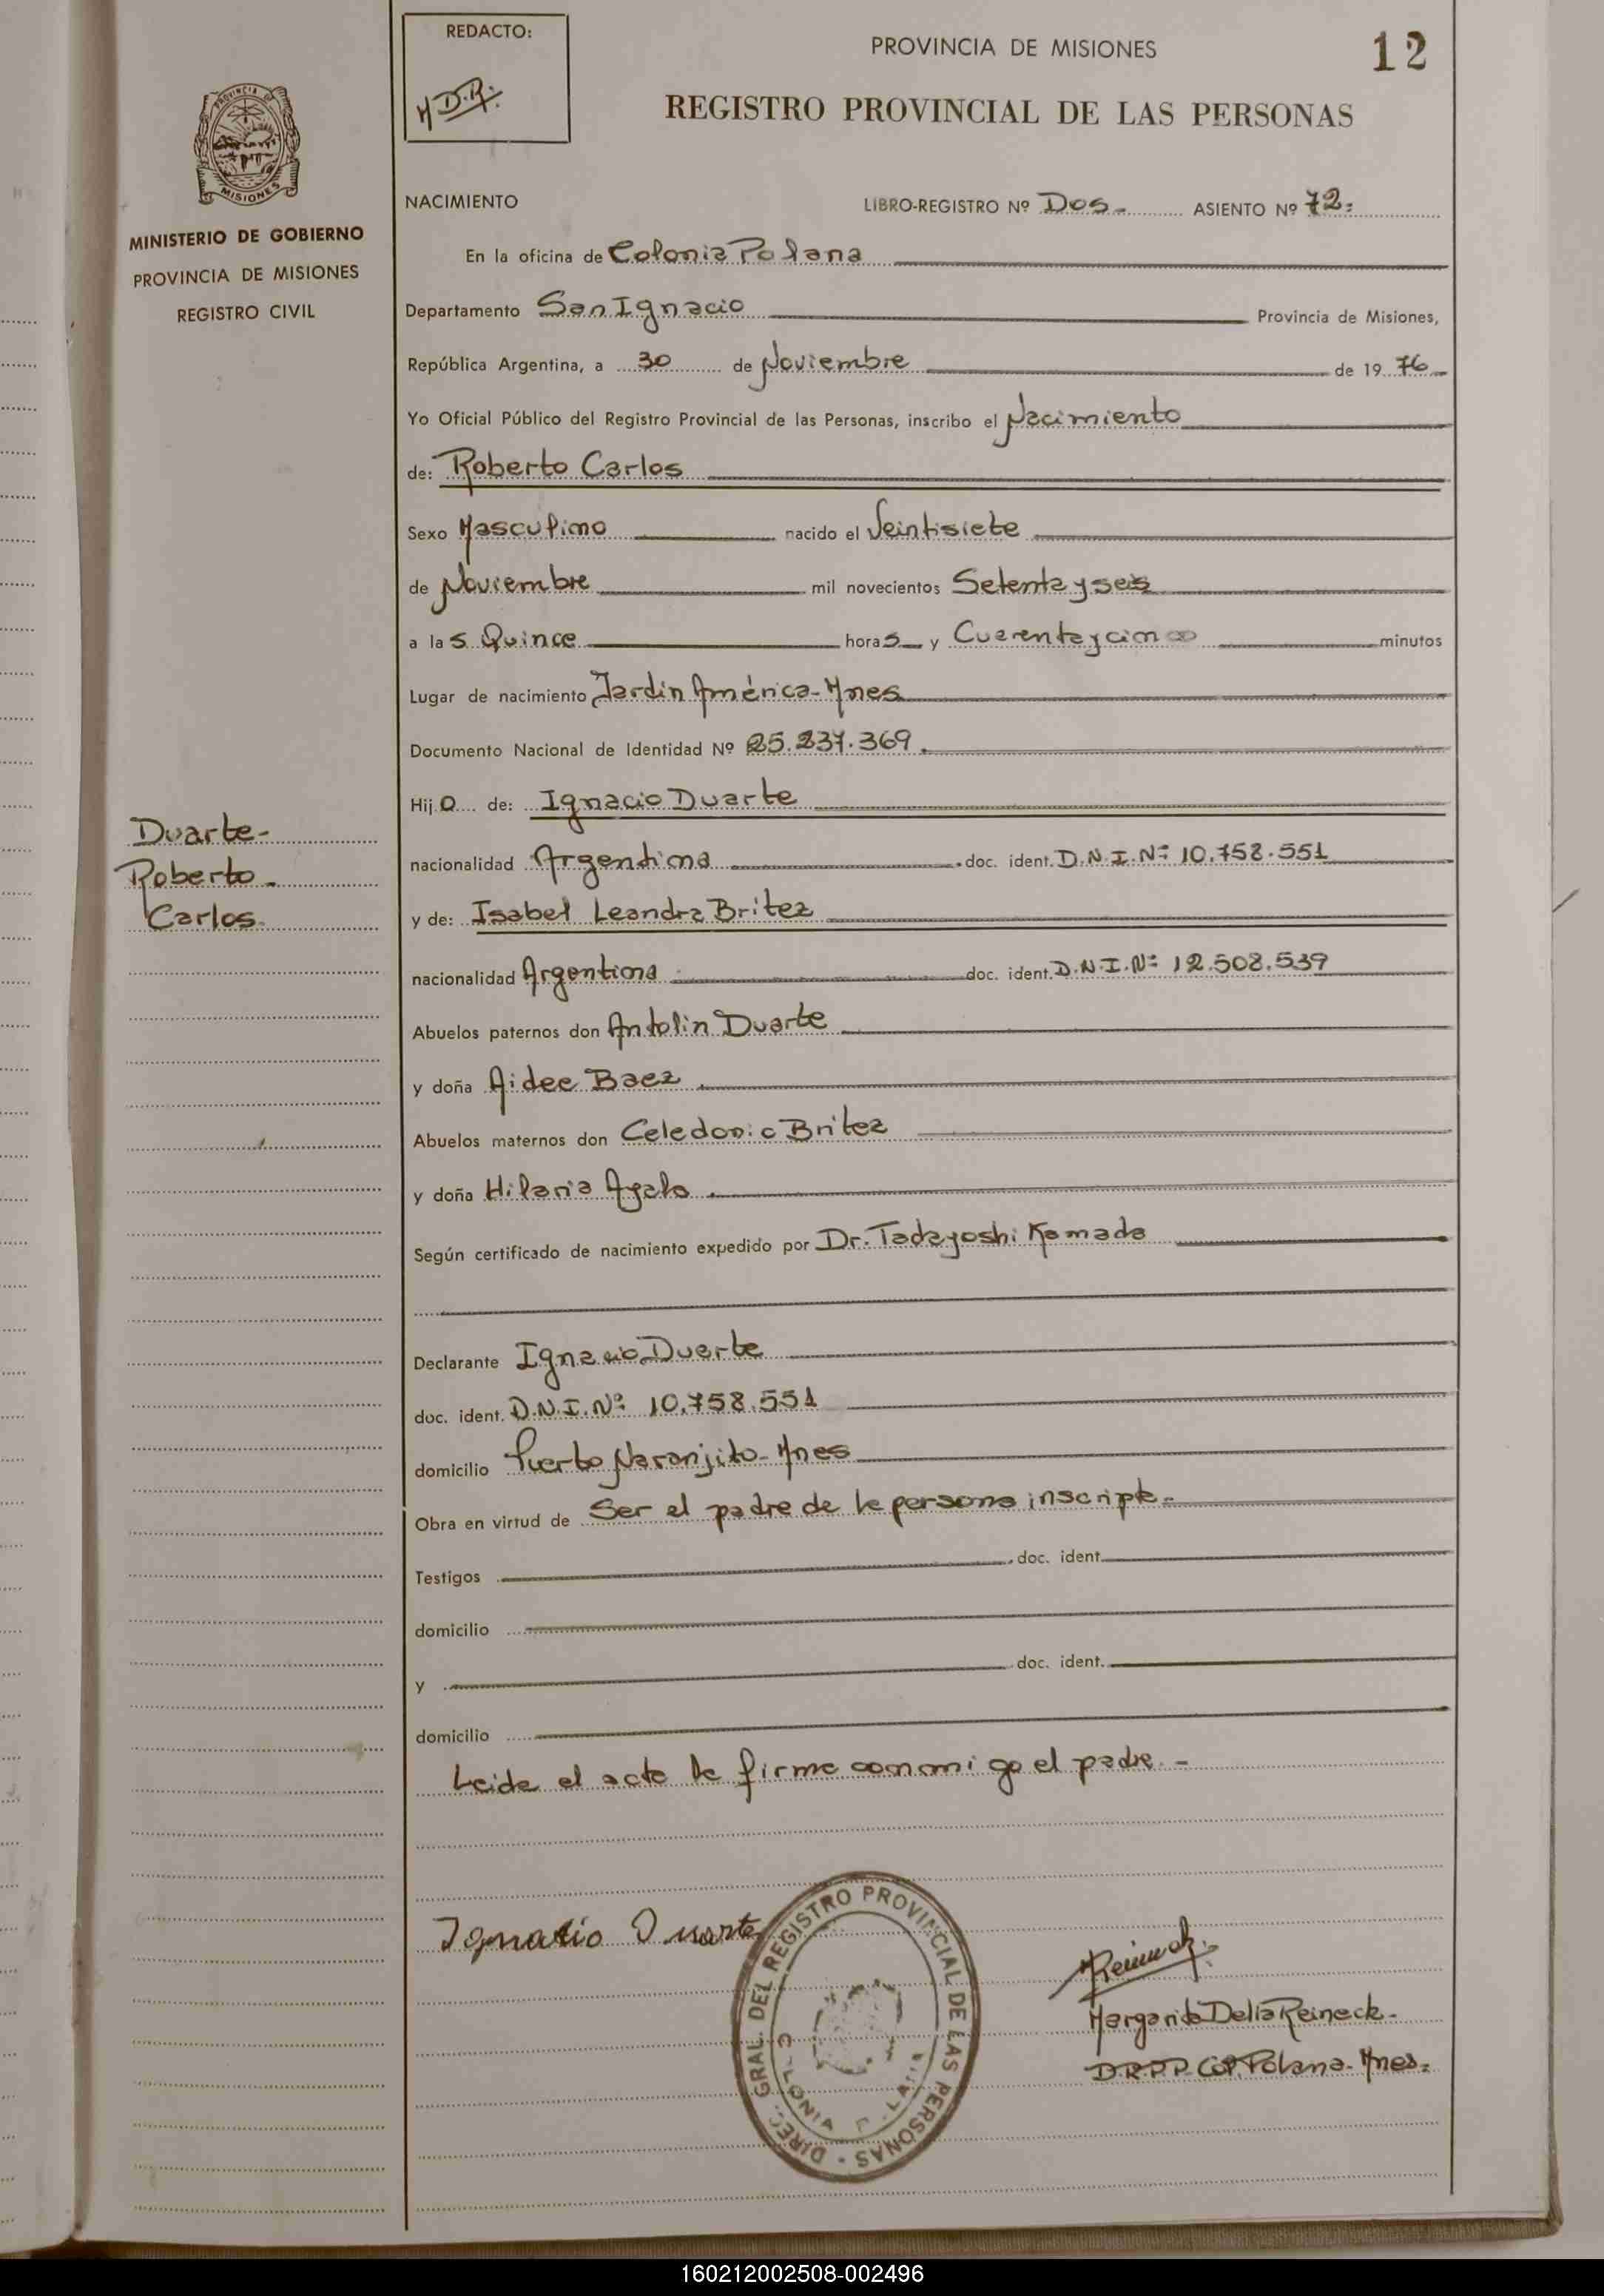 REDACTO:
M D.R.
PROVINCIA DE MISIONES
12
REGISTRO PROVINCIAL DE LAS PERSONAS
PROVINCIA DE
MISIONES
MINISTERIO DE GOBIERNO
PROVINCIA DE MISIONES
REGISTRO CIVIL
NACIMIENTO LIBRO-REGISTRO Nº Dos- ASIENTO Nº 72:
En la oficina de Colonia Polana
Departamento San Ignacio Provincia de Misiones,
República Argentina, a 30 de Noviembre de 1976
Yo Oficial Público del Registro Provincial de las Personas, inscribo el Nacimiento
de: Roberto Carlos
Sexo Masculino nacido el Veintisiete
de Noviembre mil novecientos Setenta y seis
a las Quince horas y Cuarenta y cinco minutos
Lugar de nacimiento Jardin América-Mnes
Documento Nacional de Identidad Nº 25.237.369
Hijo de: Ignacio Duarte
Duarte-
Roberto-
Carlos
nacionalidad Argentina doc. ident. D.N.I.Nº 10.758.551
y de: Isabel Leandra Britez
nacionalidad Argentina doc. ident. D.N.I.Nº 12.508.539
Abuelos paternos don Antolin Duarte
y doña Aidee Baez
Abuelos maternos don Celedonio Britez
y doña Hilaria Ayala
Según certificado de nacimiento expedido por Dr. Tadayoshi Kamada
Declarante Ignacio Duarte
doc. ident. D.N.I.Nº 10.758.551
domicilio Puerto Naranjito-Mnes
Obra en virtud de Ser el padre de la persona inscripta-
Testigos doc. ident.
domicilio
y doc. ident.
domicilio
Leida el acta la firma conmigo el padre.-
Ignacio Duarte
DIREC. GRAL. DEL REGISTRO PROVINCIAL DE LAS PERSONAS
COLONIA
Reineck
Margarita Delia Reineck-
D.R.P.P. Col. Polana-Mnes.
160212002508-002496